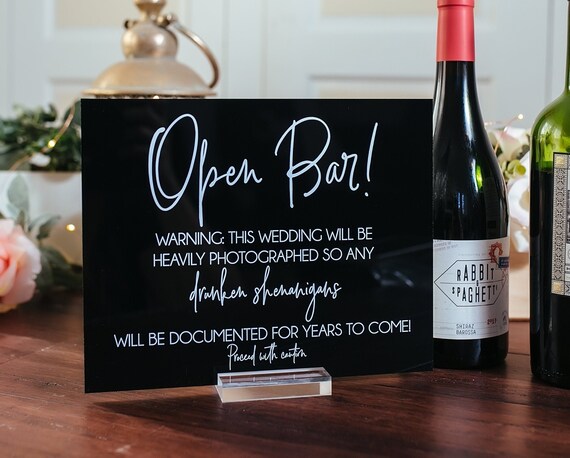 Open Bar!
WARNING: THIS WEDDING WILL BE
HEAVILY PHOTOGRAPHED SO ANY
drunken shenanigans
WILL BE DOCUMENTED FOR YEARS TO COME!
Proceed with caution
RABBIT
& SPAGHETTI
SHIRAZ
BAROSSA